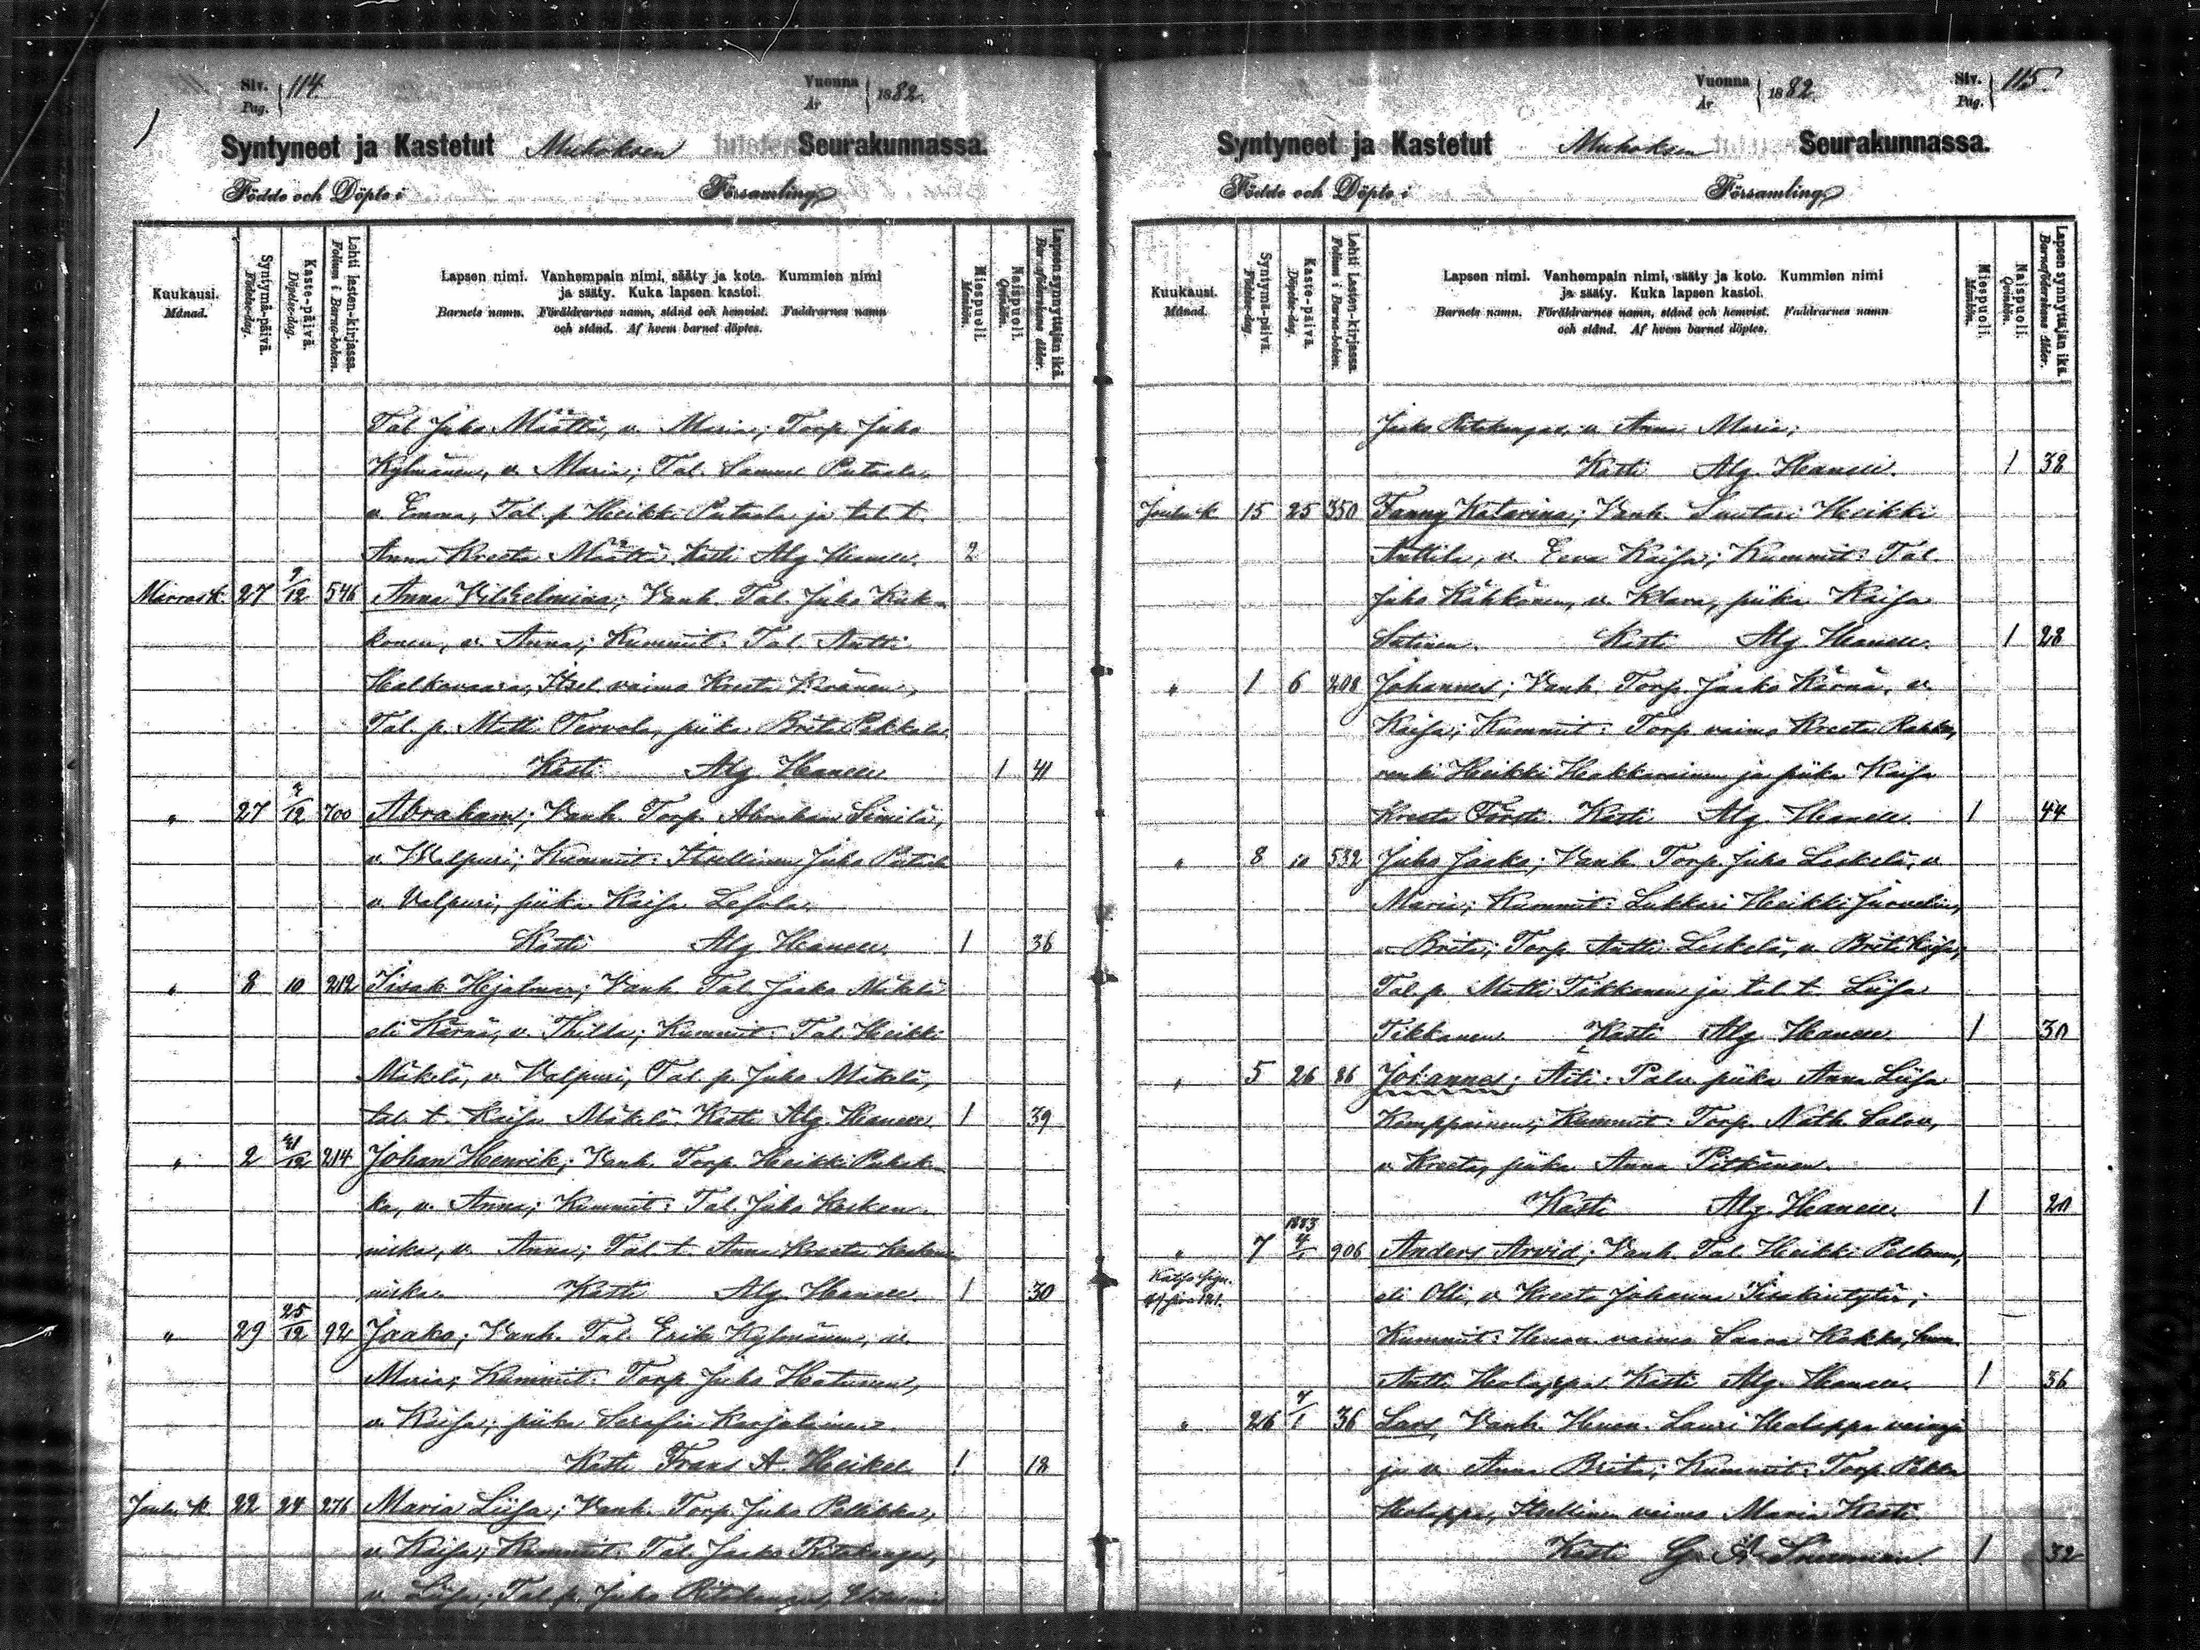 Siv. Pag. 114.
Vuonna År 1882.
Syntyneet ja Kastetut Muhoksen Seurakunnassa.
Födde och Döpte i Församling
Kuukausi. Månad.
Syntymä-päivä. Födelse-dag.
Kaste-päivä. Döpelse-dag.
Lehti lasten-kirjassa. Folium i Barna-boken.
Lapsen nimi. Vanhempain nimi, sääty ja koto. Kummien nimi
ja sääty. Kuka lapsen kastoi.
Barnets namn. Föräldrarnes namn, stånd och hemvist. Faddrarnes namn
och stånd. Af hvem barnet döptes.
Miespuoli. Mankön.
Naispuoli. Qvinkön.
Lapsen synnyttäjän ikä. Barnaföderskans ålder.
Tal. Juho Määttä, v. Maria; Torp. Juho
Kylmänen, v. Maria; Tal. Samuel Putaala,
v. Emma, Tal. p. Heikki Putaala ja tal. t.
Anna Kreeta Määttä. Kasti Alg. Hanell. 2
Marrask. 27 9/12 546 Anna Vilhelmina; Vanh. Tal. Juho Kuk-
konen, v. Anna; Kummit: Tal. Antti
Halkavaara, Itsel. vaimo Kreeta
Tal. p. Matti Tervola, piika Brita Pekkala
Kasti Alg. Hanell 1 41
" 27 /12 700 Abraham; Vanh. Torp. Abraham Similä,
v. Walpuri; Kummit: Itsellinen Juho
v. Valpuri, piika Kaisa
Kasti Alg. Hanell. 1 36
" 8 10 212 Iisak Hjalmar; Vanh. Tal. Jaako Mäkelä
eli Kärnä, v. Thilda; Kummit: Tal. Heikki
Mäkelä, v. Valpuri, Tal. p. Juho Mäkelä,
tal. t. Kaisa Mäkelä. Kasti Alg. Hanell 1 39
" 2 /12 214 Johan Henrik; Vanh. Torp. Heikki Puhak-
ka, v. Anna; Kummit: Tal. Juho Kosken-
niska, v. Anna; Tal. t. Anna Kreeta Kosken-
niska. Kasti Alg. Hanell. 1 30
" 29 25/12 92 Jaako; Vanh. Tal. Erik Kylmänen, v.
Maria; Kummit: Torp. Juho Hætunen,
v. Kaisa; piika Serafia Karjalainen.
Kasti Frans A. Heikel. 1 18
Jouluk. 22 24 276 Maria Liisa; Vanh. Torp. Juho Pelkkka,
v. Kaisa; Kummit: Tal. Jaako Ritokangas,
v. Liisa; Tal. p. Juho Ritokangas,
Vuonna År 1882.
Siv. Pag. 115.
Syntyneet ja Kastetut Muhoksen Seurakunnassa.
Födde och Döpte i Församling
Kuukausi. Månad.
Syntymä-päivä. Födelse-dag.
Kaste-päivä. Döpelse-dag.
Lehti Lasten-kirjassa. Folium i Barna-boken.
Lapsen nimi. Vanhempain nimi, sääty ja koto. Kummien nimi
ja sääty. Kuka lapsen kastoi.
Barnets namn. Föräldrarnes namn, stånd och hemvist. Faddrarnes namn
och stånd. Af hvem barnet döptes.
Miespuoli. Mankön.
Naispuoli. Qvinkön.
Lapsen synnyttäjän ikä. Barnaföderskans ålder.
Juho Ritokangas, v. Anna Maria;
Kasti Alg. Hanell. 1 38
Jouluk. 15 25 350 Fanny Katarina; Vanh. Suutari Heikki
Anttila, v. Eeva Kaisa; Kummit: Tal.
Juho Kähkönen, v. Klara, piika Kaisa
Kasti Alg. Hanell. 1 28
" 1 6 208 Johannes; Vanh. Torp. Jaako Kärnä, v.
Kaisa; Kummit: Torp. vaimo Kreeta
renki Heikki Hakkarainen ja piika Kaisa
Kreeta Kasti Alg. Hanell. 1 44
" 8 10 532 Juho Jaako; Vanh. Torp. Juho Leskelä, v.
Maria; Kummit: Lukkari Heikki Juvelin,
v. Brita; Torp. Antti Leskelä, v. Brita Kaisa,
Tal. p. Matti Tikkanen ja tal. t. Liisa
Tikkanen Kasti Alg. Hanell 1 30
" 5 26 86 Johannes; Äiti: Palv. piika Anna Liisa
Komppainen; Kummit: Torp. Nath. Salow,
v. Kreeta, piika Anna Pitkänen.
Kasti Alg. Hanell. 1 20
" 7 1883 4/1 906 Anders Arvid; Vanh. Tal. Heikki Pelkonen,
eli Olli, v. Kreeta Johanna Iisakintytär;
Kummit: Huon. vaimo Saara Kokko, huon.
Antti Holappa. Kasti Alg. Hanell. 1 36
" 26 7/1 36 Lars, Vanh. Huon. Lauri Holappa
ja v. Anna Brita; Kummit: Torp. Pekka
Holappa, Itsellinen vaimo Maria Kesti.
Kasti G. A. Snellman. 1 32